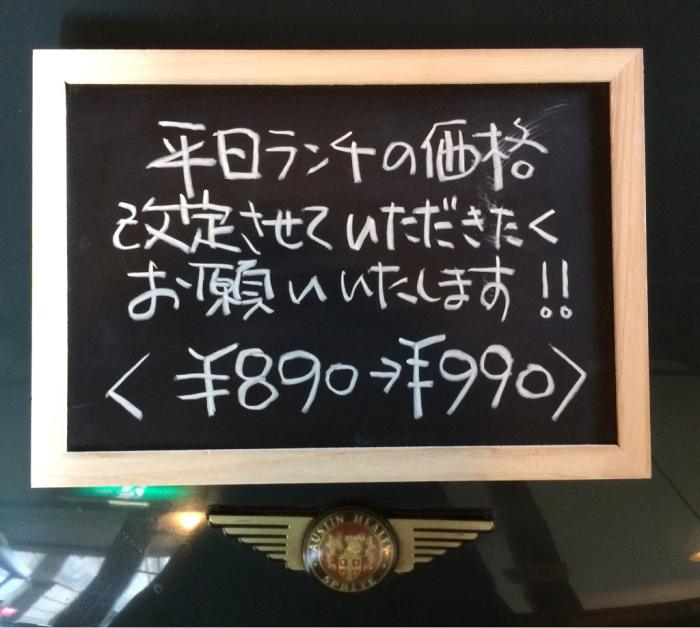 平日ランチの価格
改定させていただきたく
お願いいたします!!
<¥890→¥990>
AUSTIN HEALEY
SPRITE